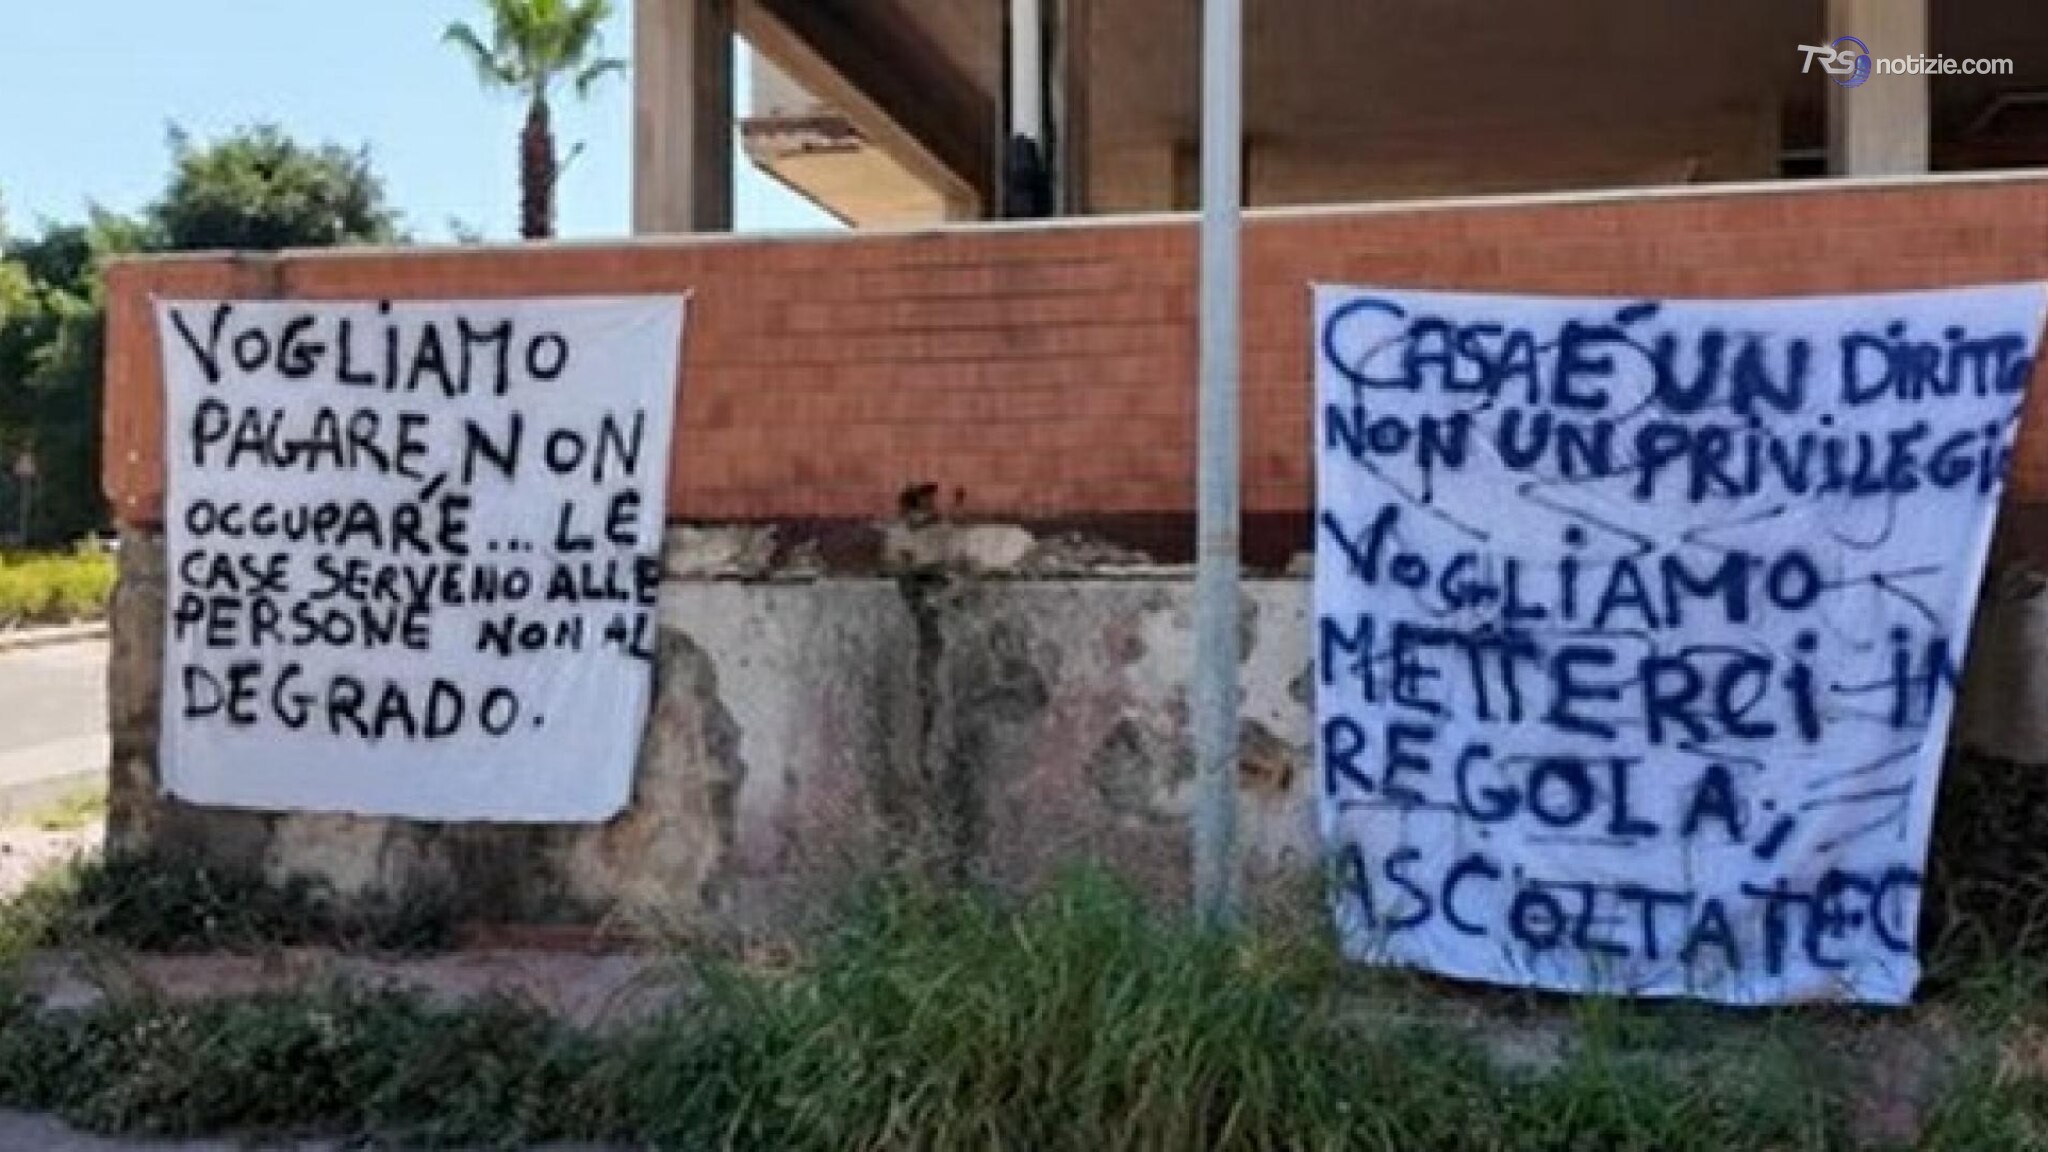 TRS notizie.com
VOGLiAMO
PAGARE, NON
OCCUPARE... LE
CASE SERVENO ALLE
PERSONE NON AL
DEGRADO.
CASA É UN DiRiTTO
NON UN PRiViLEGiO
VOGLiAMO
METTERCi iN
REGOLA,
ASCOLTATEC